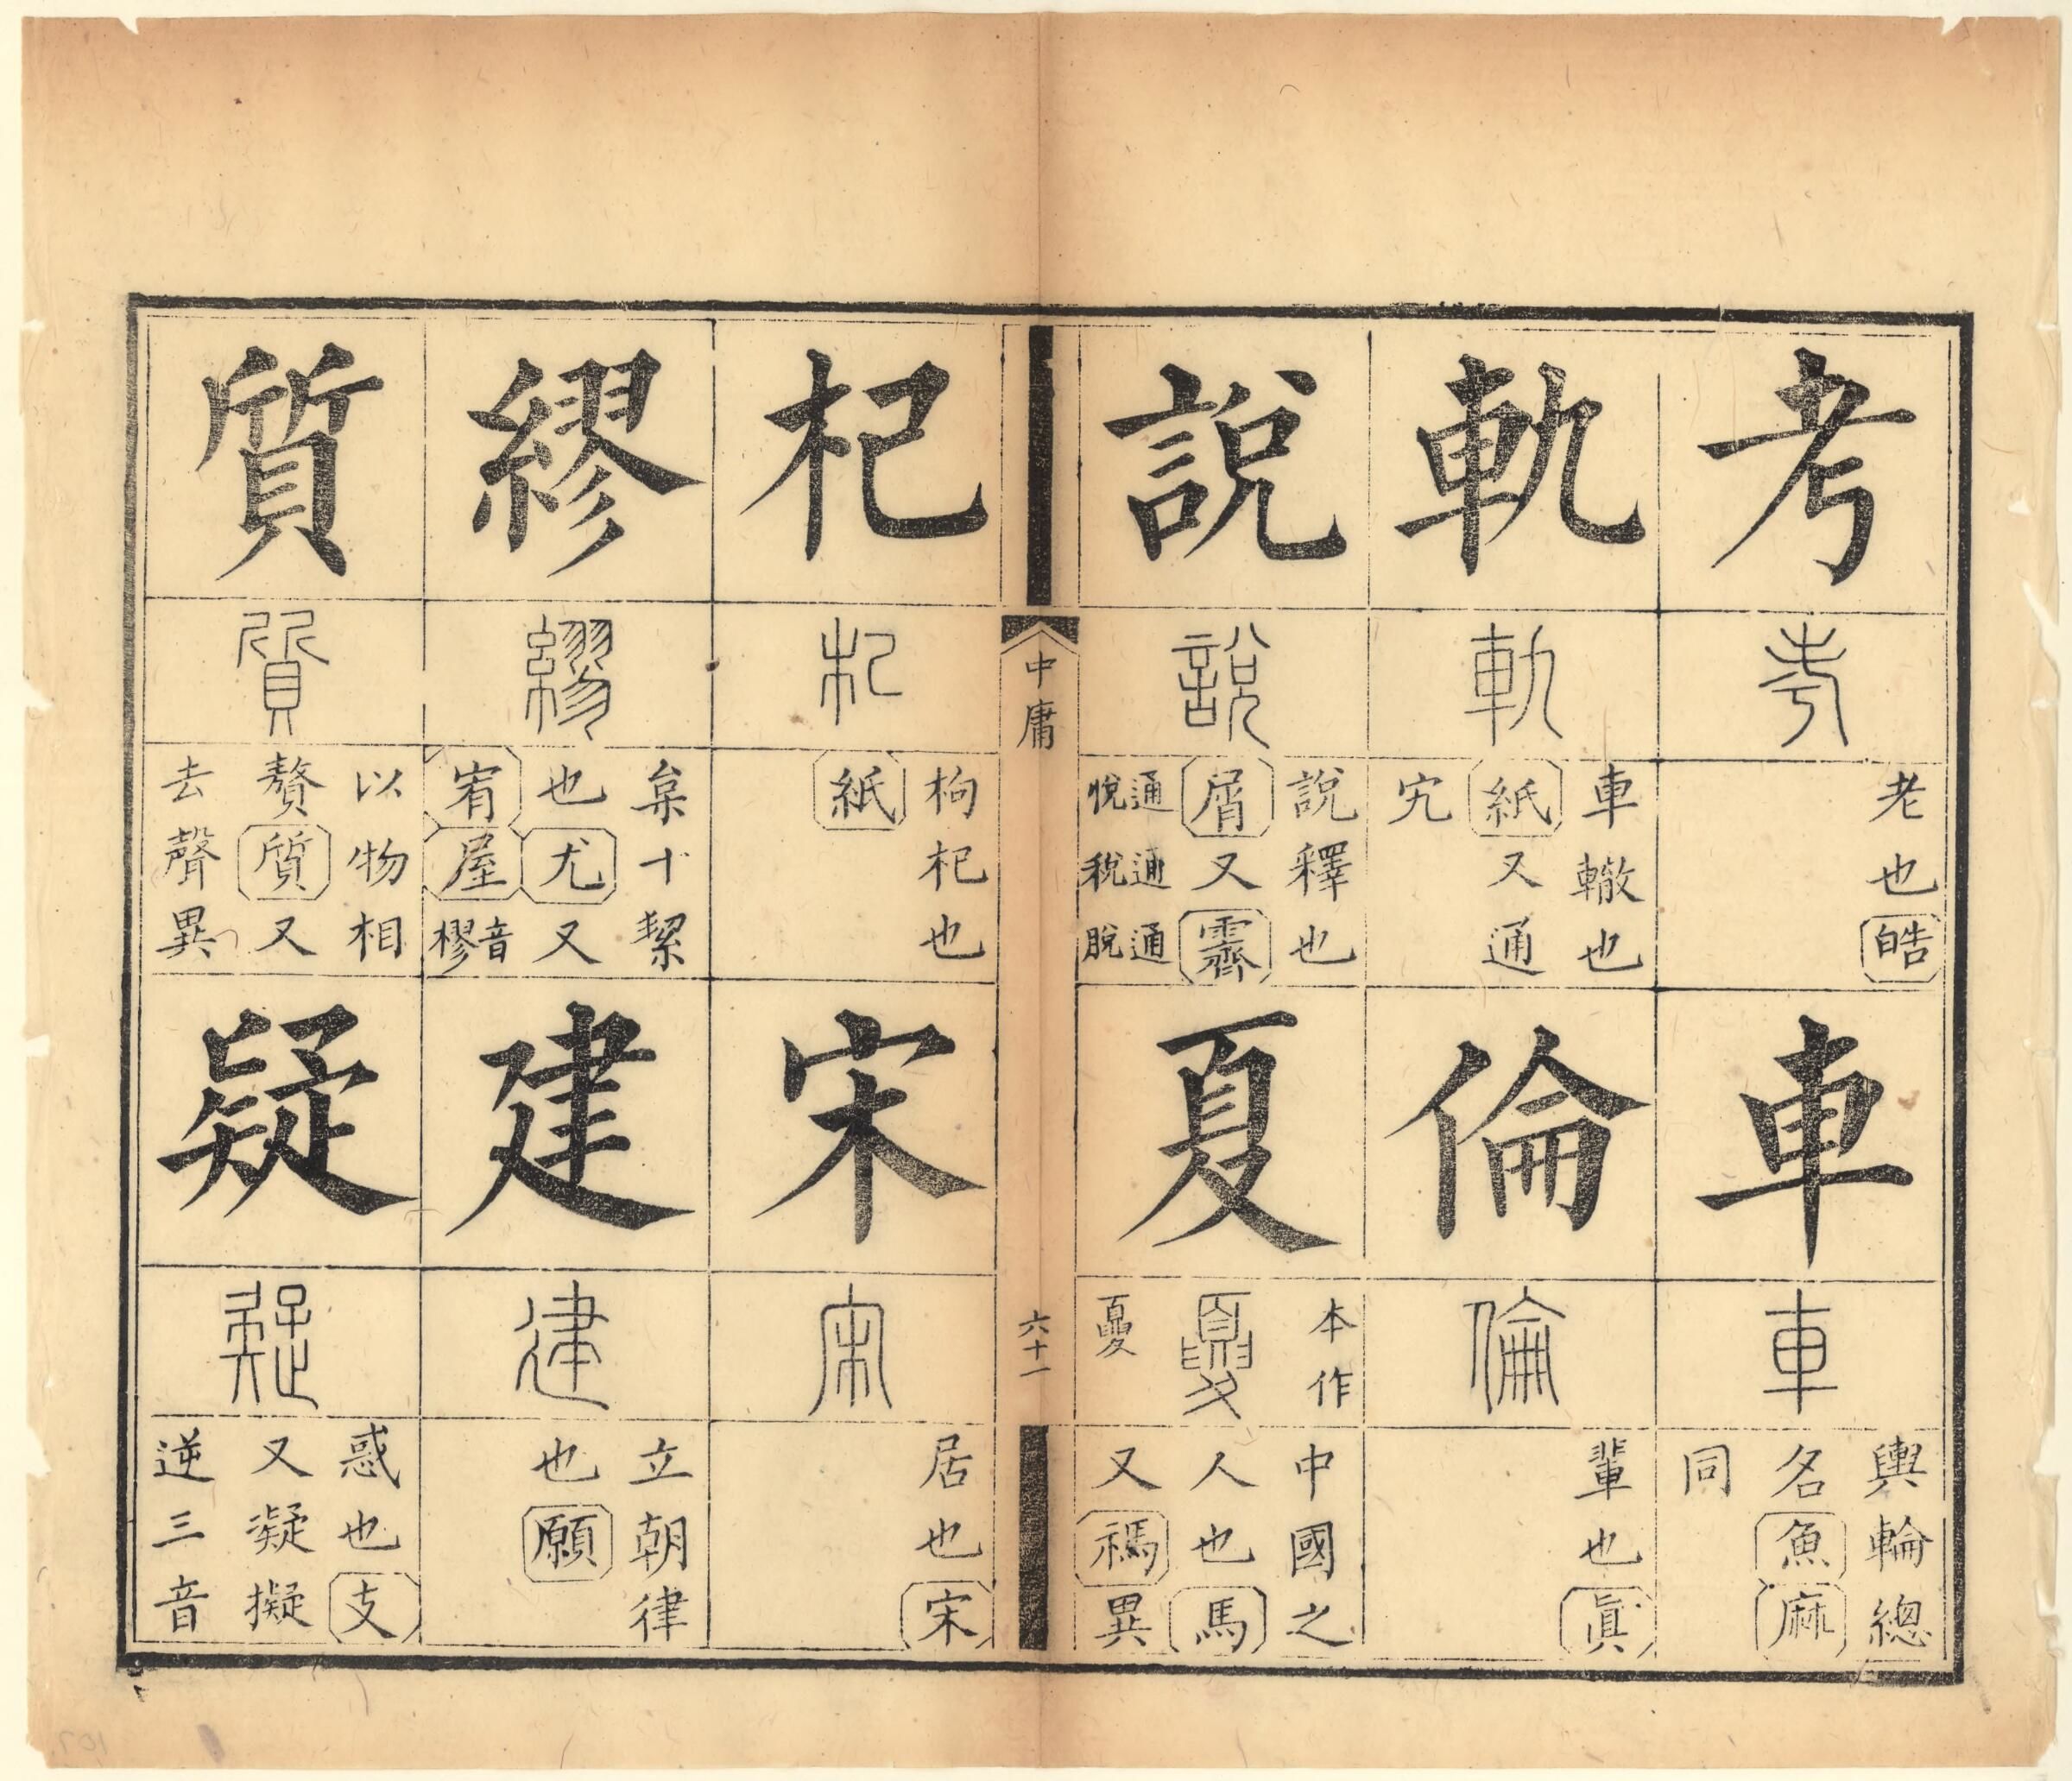 考
考
老也皓
車
車
輿輪總
名魚麻
同
軌
軌
車轍也
紙又通
宄
倫
倫
輩也眞
說
說
說釋也
屑又霽
通悅通稅通脫
夏
本作
夏
中國之
人也馬
又禡異
中庸
六十一
杞
杞
枸杞也
紙
宋
宋
居也宋
繆
繆
枲十絜
也尤又
宥屋音樛
建
建
立朝律
也願
質
質
以物相
贅質又
去聲異
疑
疑
惑也支
又凝擬
逆三音